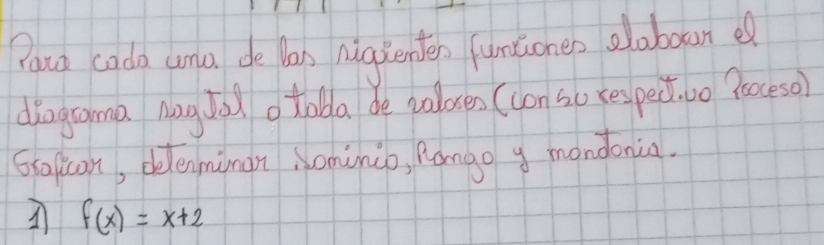 Para cada una de las siguientes funciones elaboran el
diagrama sagital o tabla de valores (con su respectivo Proceso)
Graficar, determinar Dominio, Rango y monotonia.
1) f(x) = x+2